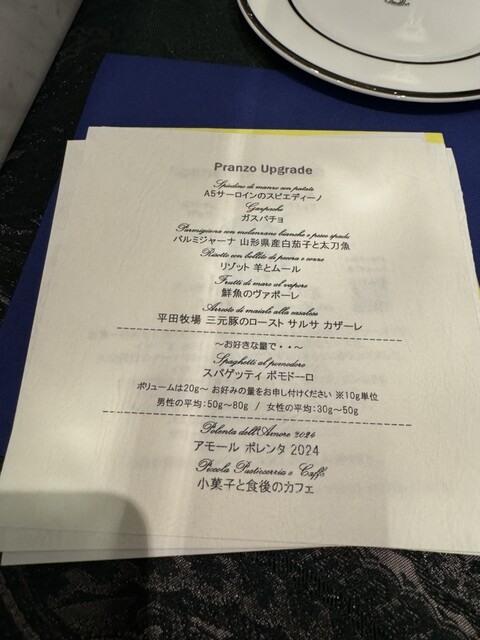 Pranzo Upgrade
Spiedino di manzo con patate
A5サーロインのスピエディーノ
Gaspacho
ガスパチョ
Parmigiana con melanzane bianche e pesce spada
パルミジャーナ 山形県産白茄子と太刀魚
Risotto con bollito di pecora e cozze
リゾット 羊とムール
Frutti di mare al vapore
鮮魚のヴァポーレ
Arrosto di maiale alla casalese
平田牧場 三元豚のロースト サルサ カザーレ
～お好きな量で・・～
Spaghetti al pomodoro
スパゲッティ ポモドーロ
ボリュームは20g～ お好みの量をお申し付けください ※10g単位
男性の平均：50g～80g / 女性の平均：30g～50g
Polenta dell'Amore 2024
アモール ポレンタ 2024
Piccola Pasticcerria e Caffè
小菓子と食後のカフェ